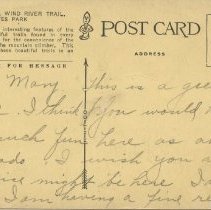 WIND RIVER TRAIL,
ES PARK
interesting features of the
ful trails found in every
for the convenience of the
the mountain climber. This
ese beautiful trails is an
POST CARD
ADDRESS
FOR MESSAGE
Mary this is a
I think you would
uch fun here as
ado. I wish you
might be here. I
I am having a fine